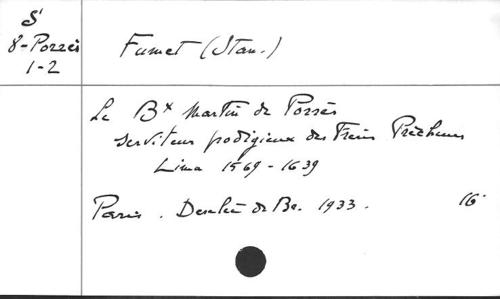 S'
8-Porrès
1-2
Fumet (Stan.)
Le Bx Martin de Porrès
serviteur prodigieux des Frères Prêcheurs
Lima 1569-1639
Paris. Desclée de Br. 1933. 16°